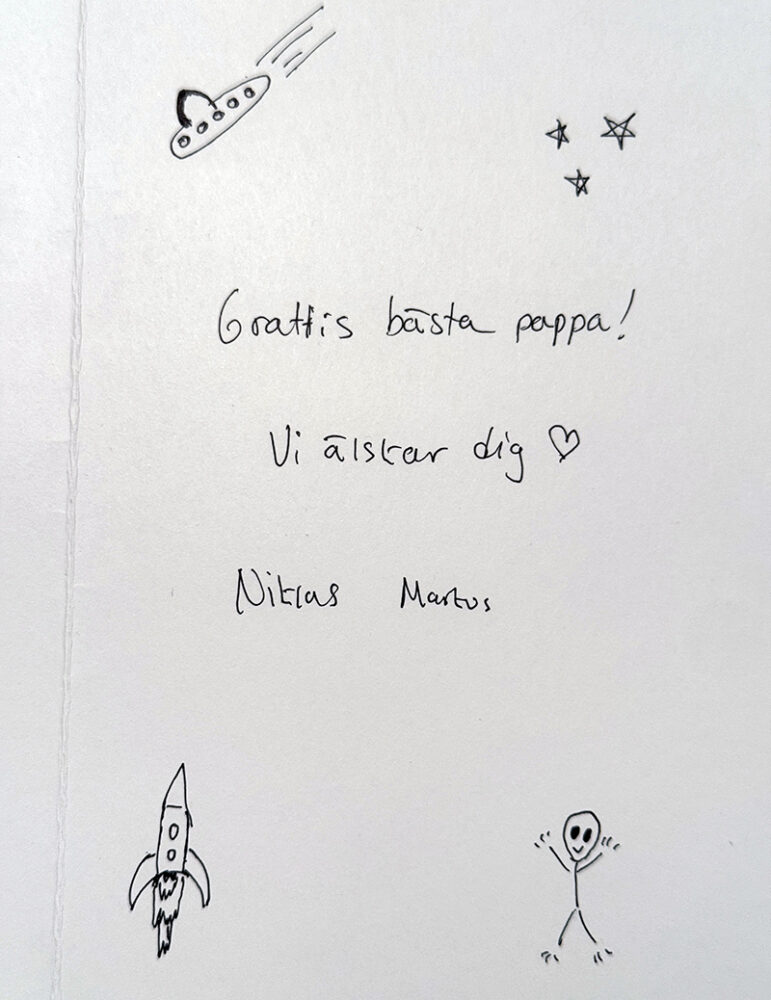 Grattis bästa pappa!
Vi älskar dig ♡
Niklas Markus